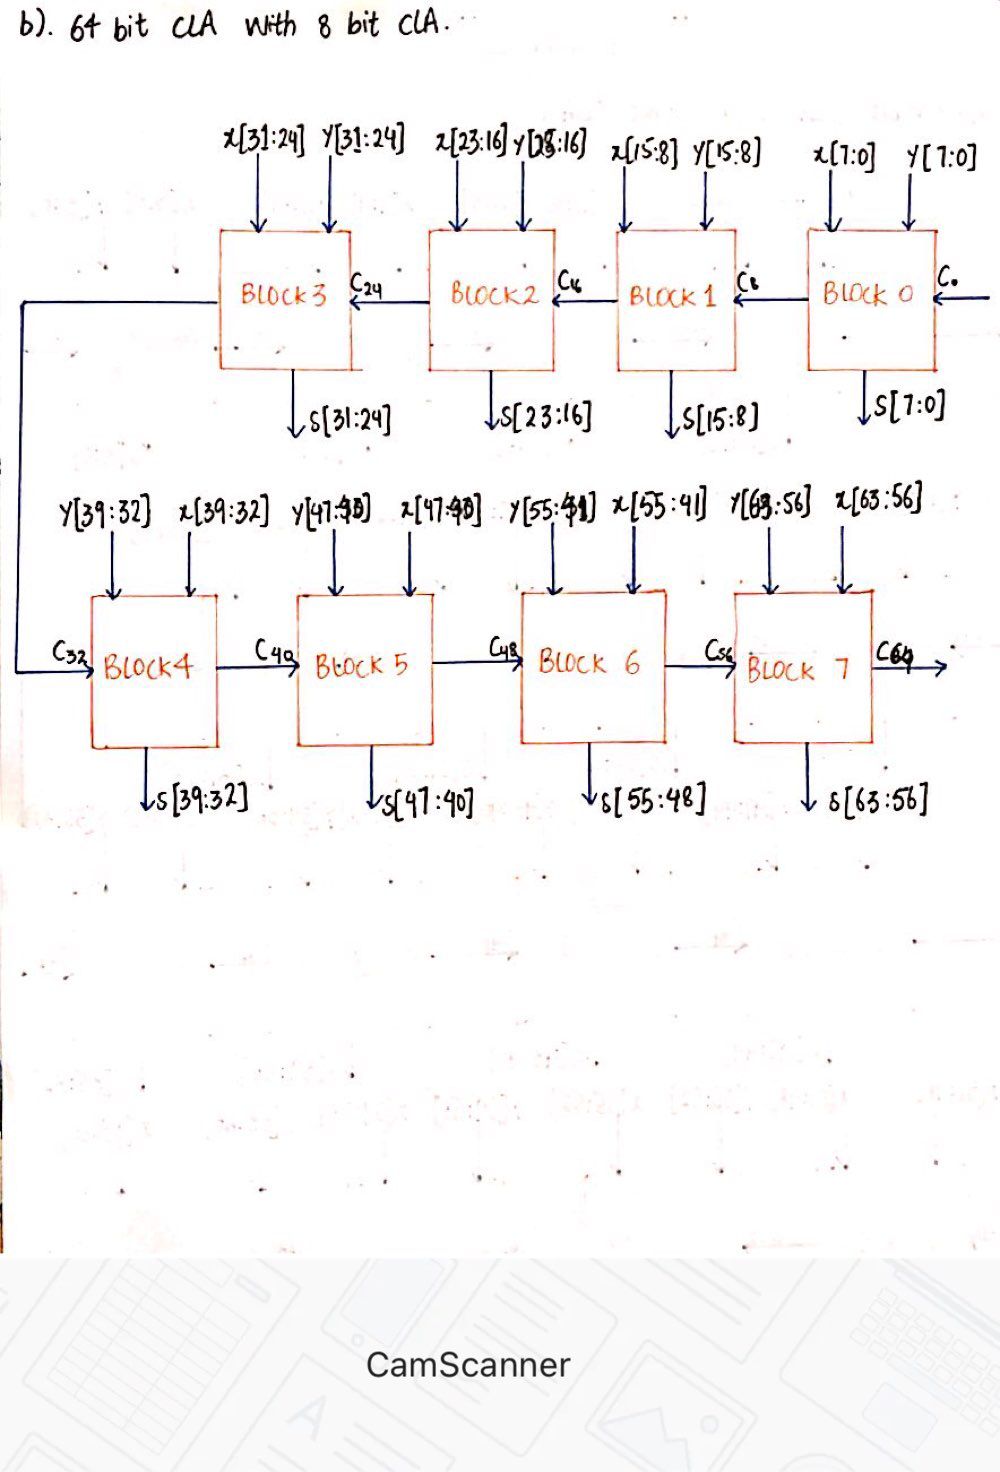 b). 64 bit CLA with 8 bit CLA.
x[31:24] y[31:24] x[23:16] y[23:16] x[15:8] y[15:8] x[7:0] y[7:0]
BLOCK 3 C24 BLOCK 2 C16 BLOCK 1 C8 BLOCK 0 C0
S[31:24] S[23:16] S[15:8] S[7:0]
y[39:32] x[39:32] y[47:40] x[47:40] y[55: x[55:41] y[63:56] x[63:56]
C32 BLOCK 4 C40 BLOCK 5 C48 BLOCK 6 C56 BLOCK 7 C64
S[39:32] S[47:40] S[55:48] S[63:56]
CamScanner